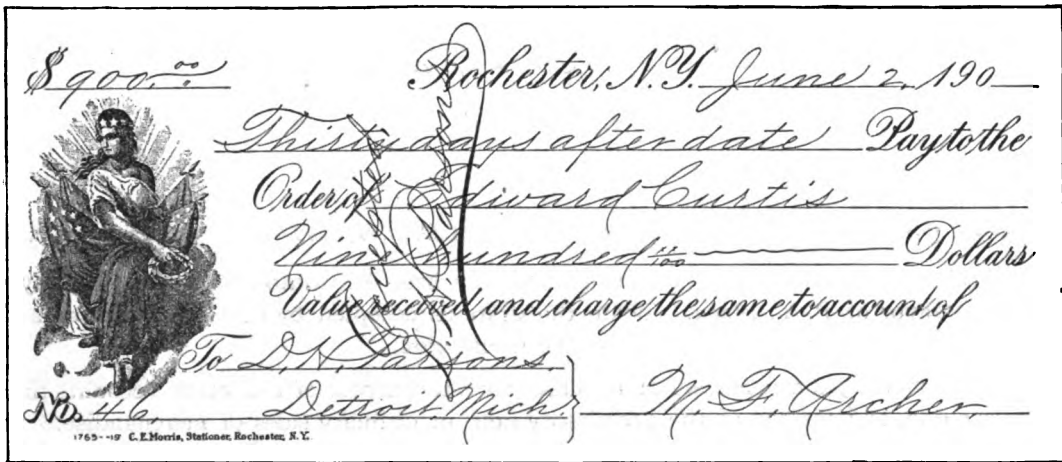 $ 900.00
Rochester, N.Y. June 2, 190
Thirty days after date Pay to the
Order of Edward Curtis
Nine hundred 00/100 Dollars
Value received and charge the same to account of
To D. H. Parsons.
No. 46. Detroit, Mich. M. F. Archer.
1765--19 C. E. Morris, Stationer, Rochester, N. Y.
Accepted
Parsons